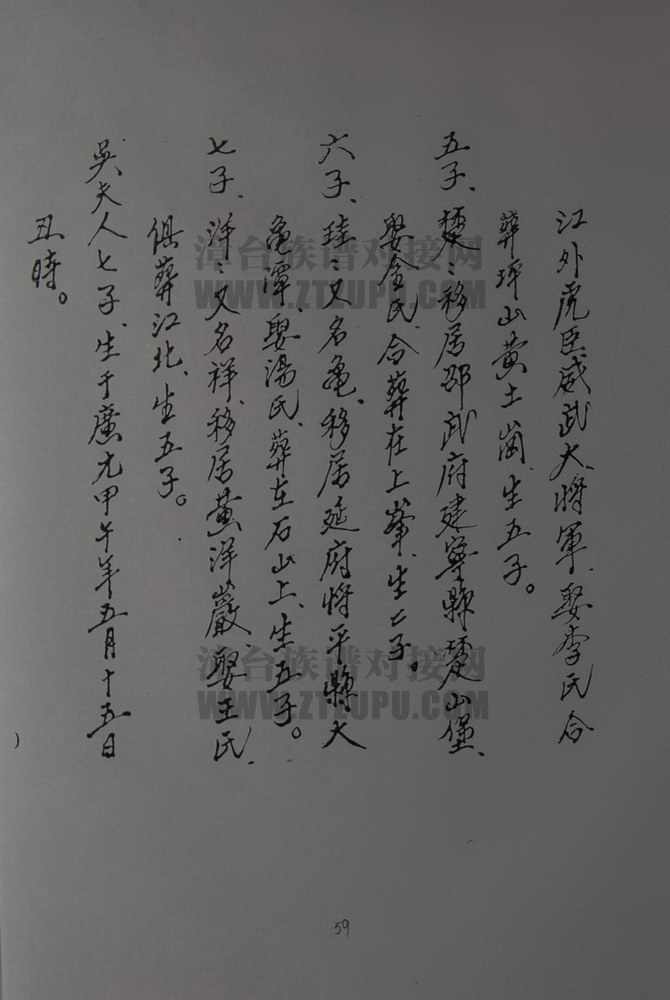 江外虎臣威武大将軍、娶李氏合
葬坪山黄土崗、生五子。
五子、楚：移居邵武府建寧縣楚山堡、
娶金氏、合葬在上峯、生七子。
六子、珪：又名亀、移居延府将平縣大
亀潭、娶湯氏、葬在石山上、生五子。
七子、洋：又名祥、移居黄洋巖、娶王氏、
俱葬江北、生五子。
吳夫人七子、生于廣元甲午年五月十五日
丑時。
59
漳台族谱对接网
WWW.ZTZUPU.COM
漳台族谱对接网
WWW.ZTZUPU.COM